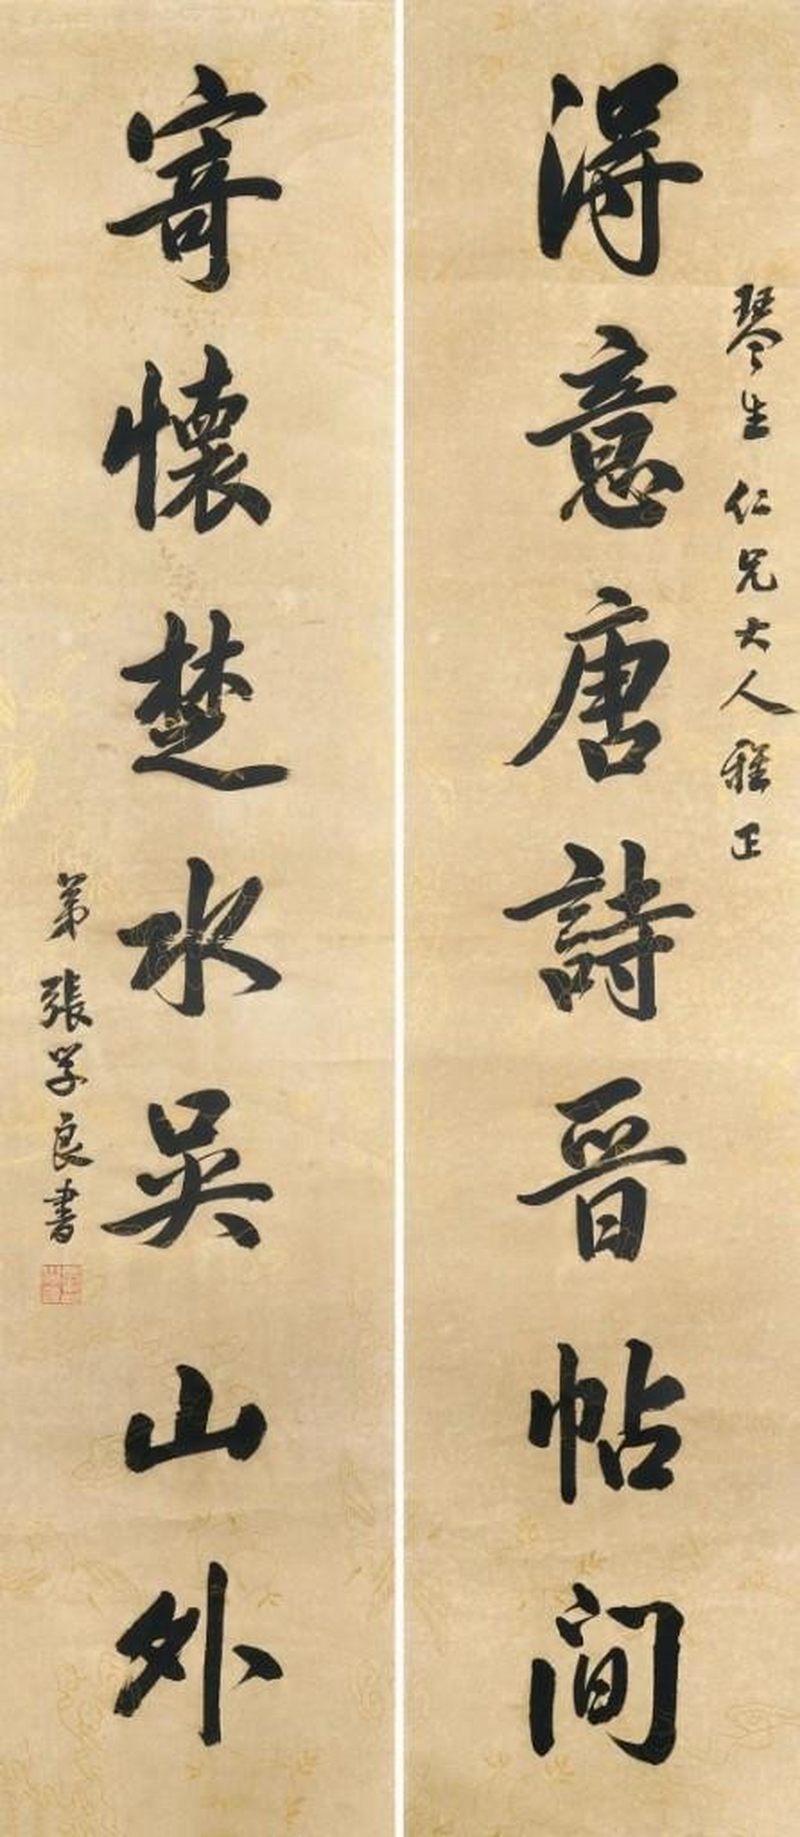 琴生仁兄大人雅正
得意唐詩晉帖間
寄懷楚水吴山外
弟張学良書